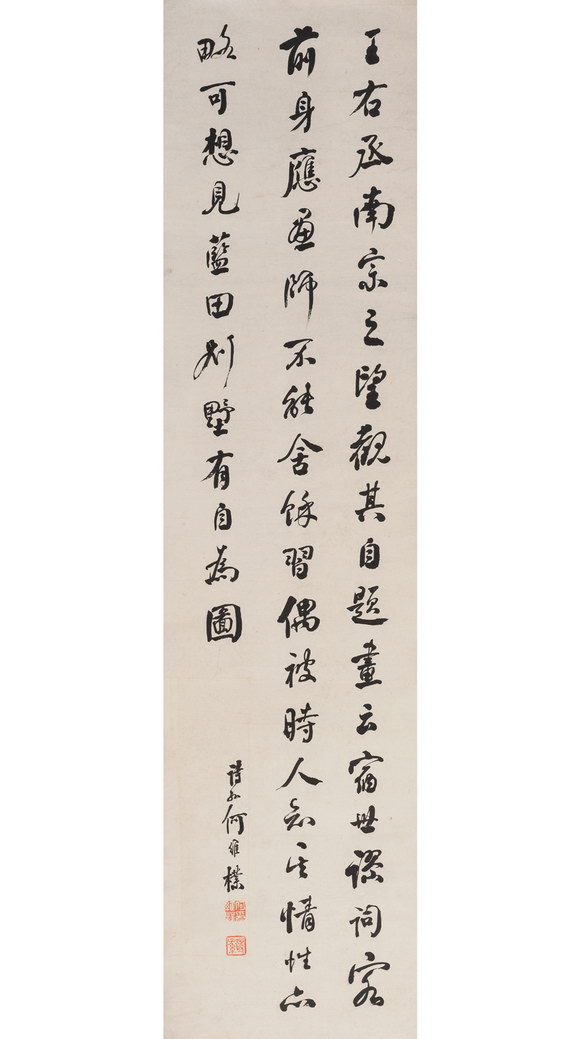 王右丞南宗之望觀其自題畫云宿世謬詞客
前身應畫師不能舍餘習偶被時人知其情性亦
略可想見藍田別墅有自為圖
詩孫何維樸